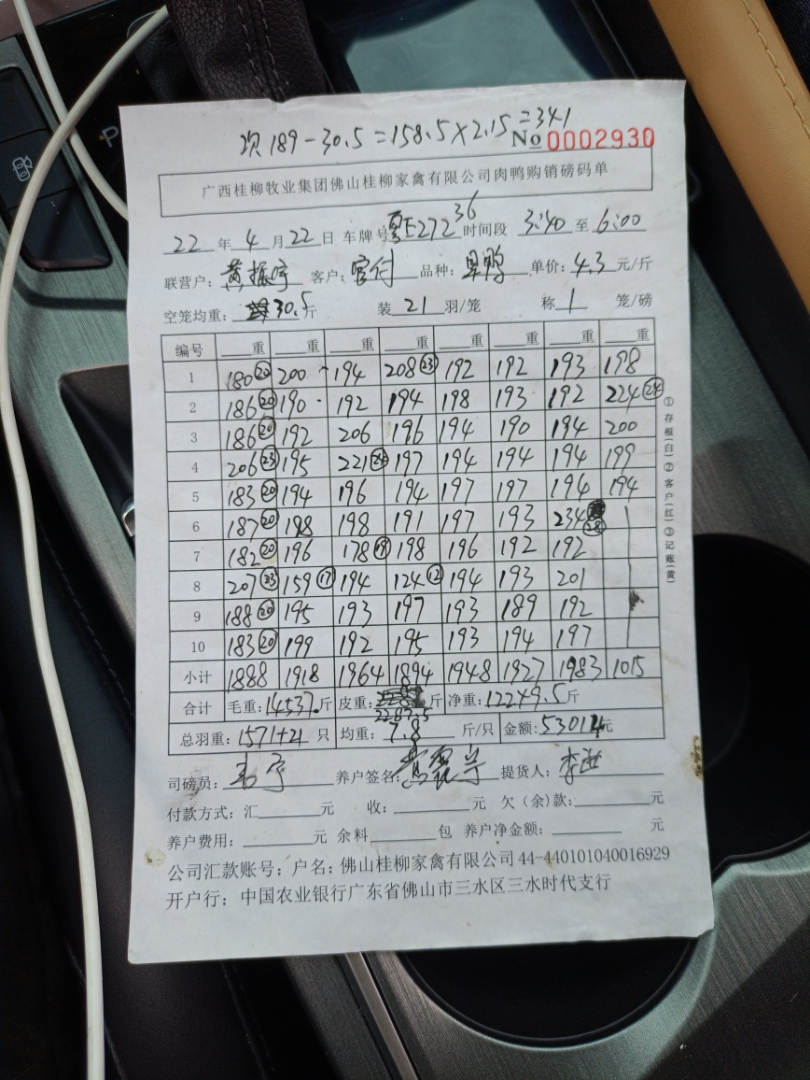 次189-30.5=158.5×2.15=341
No 0002930
广西桂柳牧业集团佛山桂柳家禽有限公司肉鸭购销磅码单
22 年 4 月 22 日 车牌号 粤E27236 时间段 3:40 至 6:00
联营户: 黄振宇 客户: 官付 品种: 旱鸭 单价: 4.3 元/斤
空笼均重: 30.5 斤 装 21 羽/笼 称 1 笼/磅
编号 重 重 重 重 重 重 重 重
1 180⑳ 200 194 208㉓ 192 192 193 198
2 186⑳ 190 192 194 198 193 192 224㉔
3 186⑳ 192 206 196 194 190 194 200
4 206㉓ 195 221㉔ 197 194 194 194 199
5 183⑳ 194 196 194 197 197 194 194
6 187⑳ 198 198 191 197 193 234㉘
7 182⑳ 196 178⑲ 198 196 192 192
8 207㉓ 159⑰ 194 124⑫ 194 193 201
9 188⑳ 195 193 197 193 189 192
10 183⑳ 199 192 195 193 194 197
小计 1888 1918 1964 1894 1948 1927 1983 1015
合计 毛重: 14537 斤 皮重: 2287.5 斤 净重: 12249.5 斤
总羽重: 1571+21 只 均重: 7.8 斤/只 金额: 53014 元
司磅员: 养户签名: 黄震宇 提货人: 李
付款方式: 汇 元 收: 元 欠(余)款: 元
养户费用: 元 余料 包 养户净金额: 元
公司汇款账号: 户名: 佛山桂柳家禽有限公司 44-440101040016929
开户行: 中国农业银行广东省佛山市三水区三水时代支行
①存根(白)②客户(红)③记账(黄)